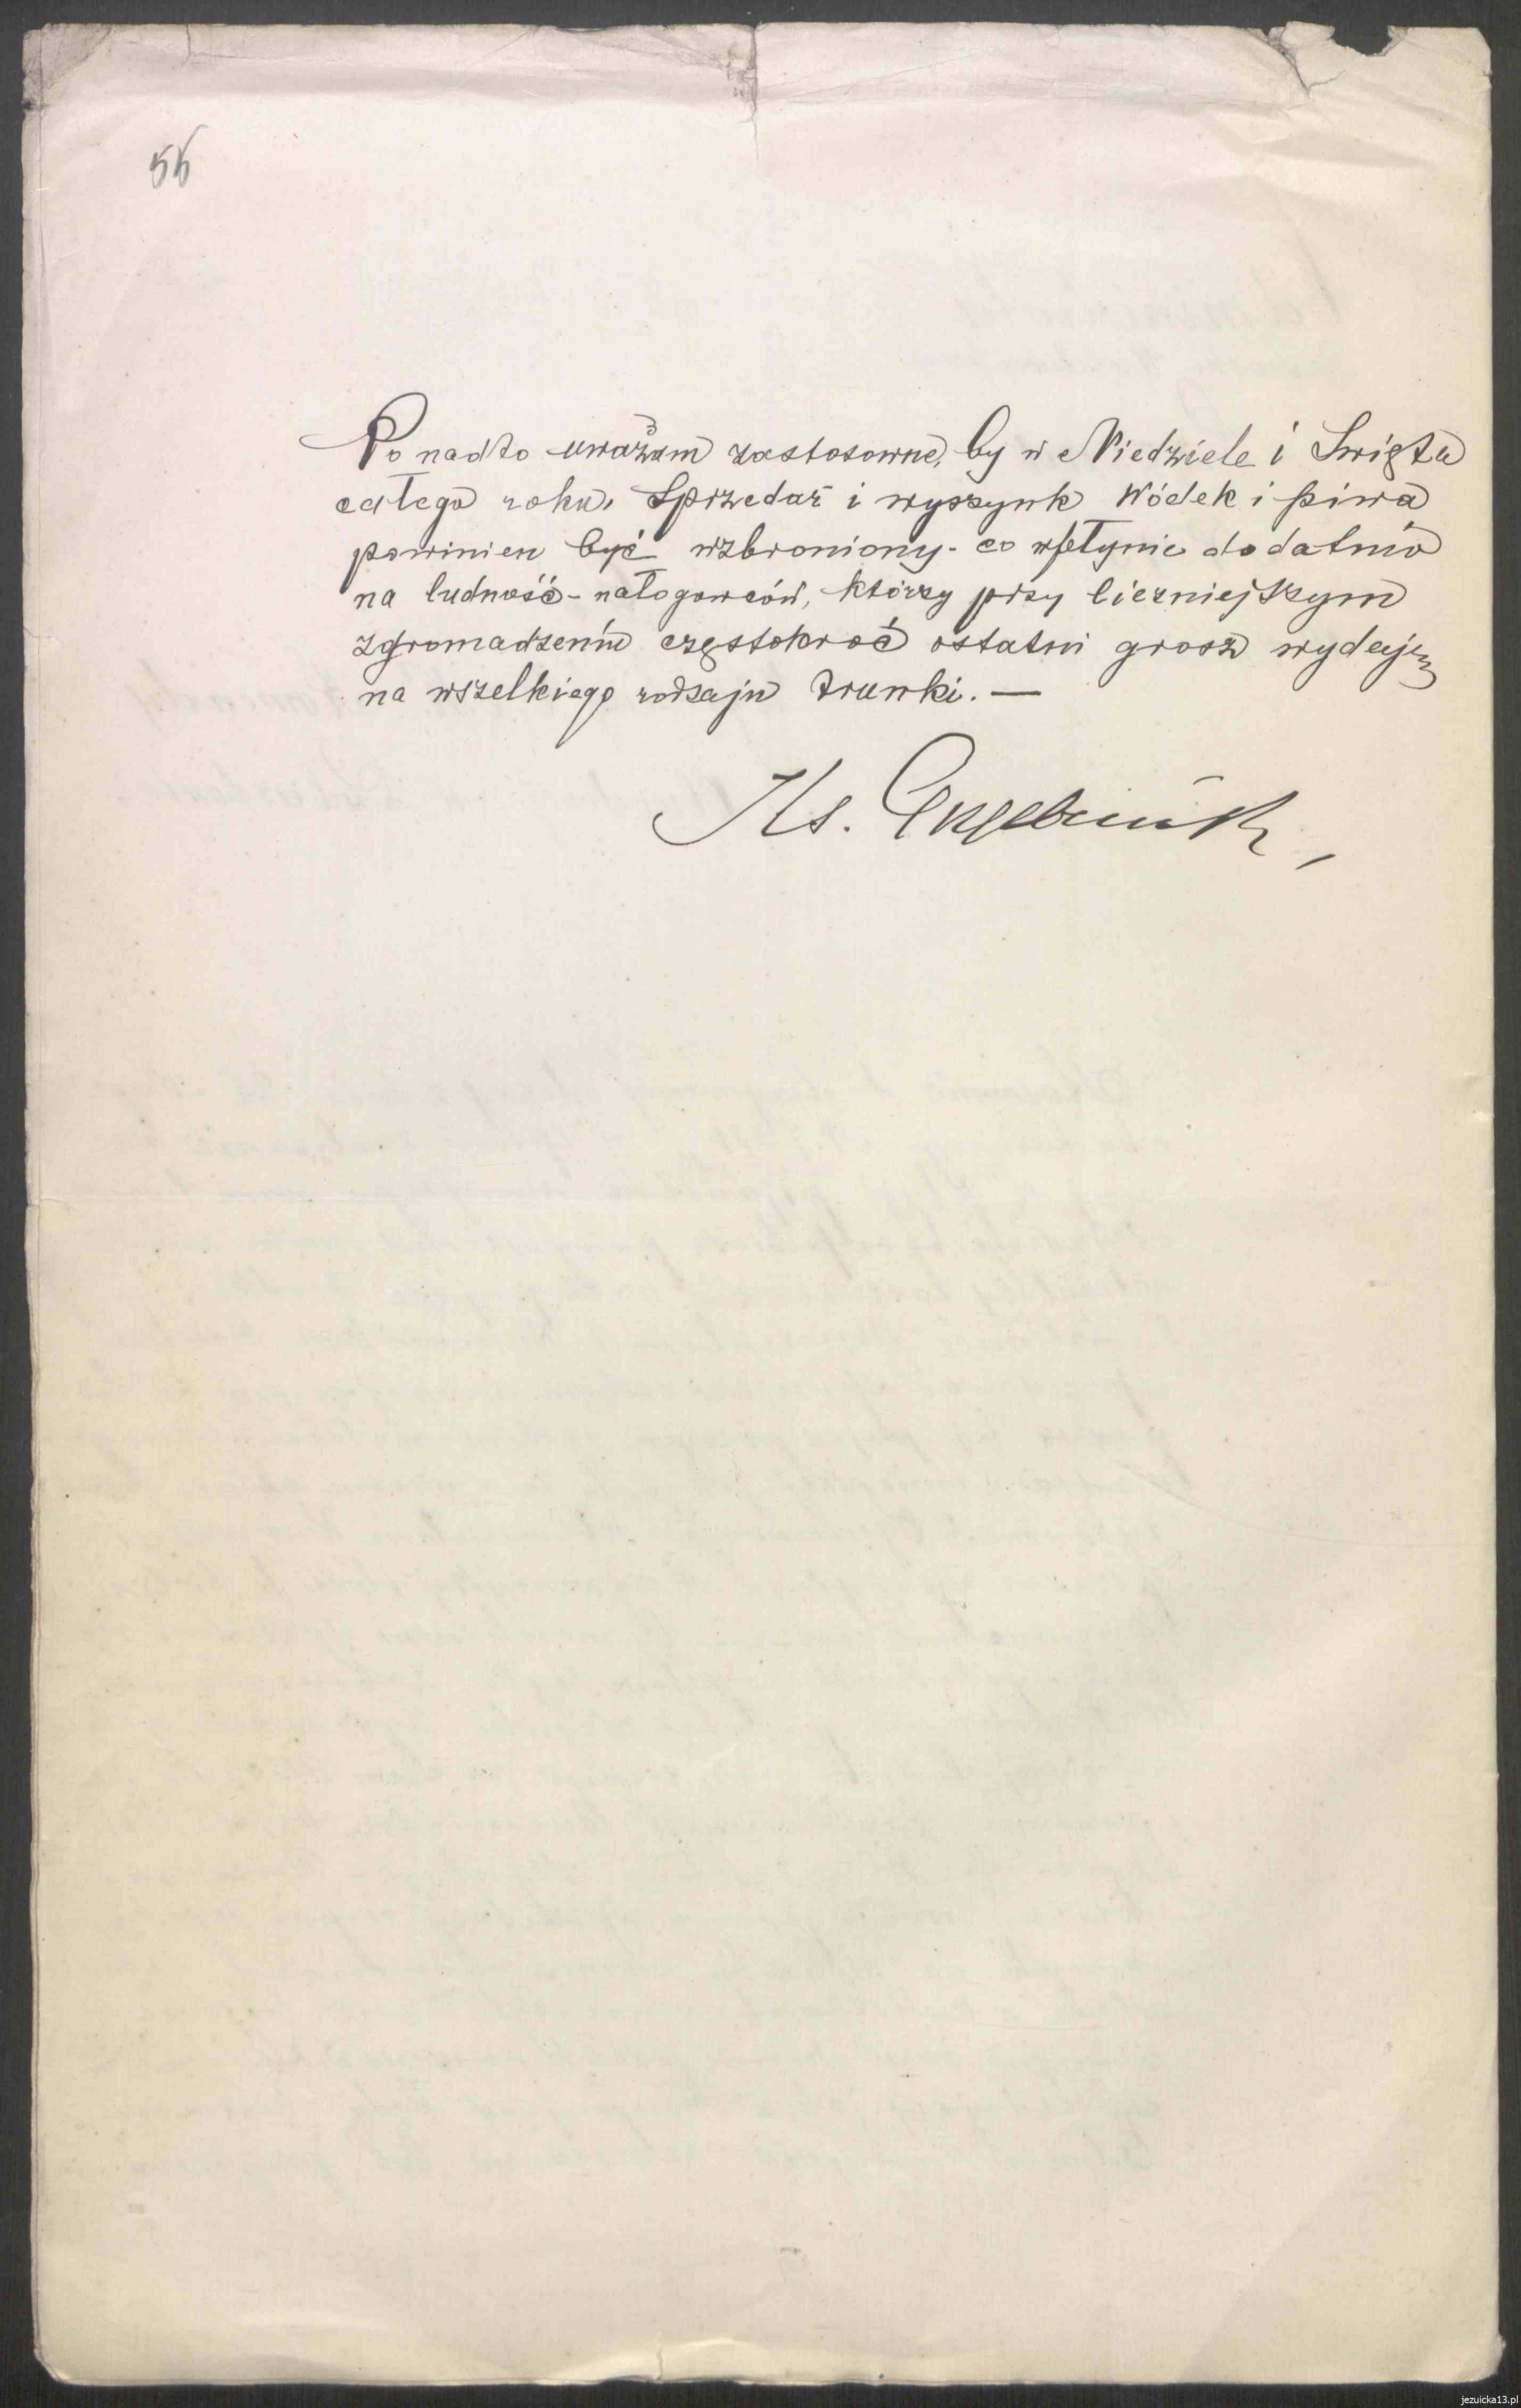 55
Ponadto uważam zastosowne, by w Niedziele i Swięta
całego roku, Sprzedaż i wyszynk Wódek i piwa
powinien być wzbroniony - co wpłynie dodatnio
na ludność - nałogowców, którzy przy liczniejszym
zgromadzeniu częstokroć ostatni grosz wydają
na wszelkiego rodzaju trunki. —
Ks.
jezuicka13.pl